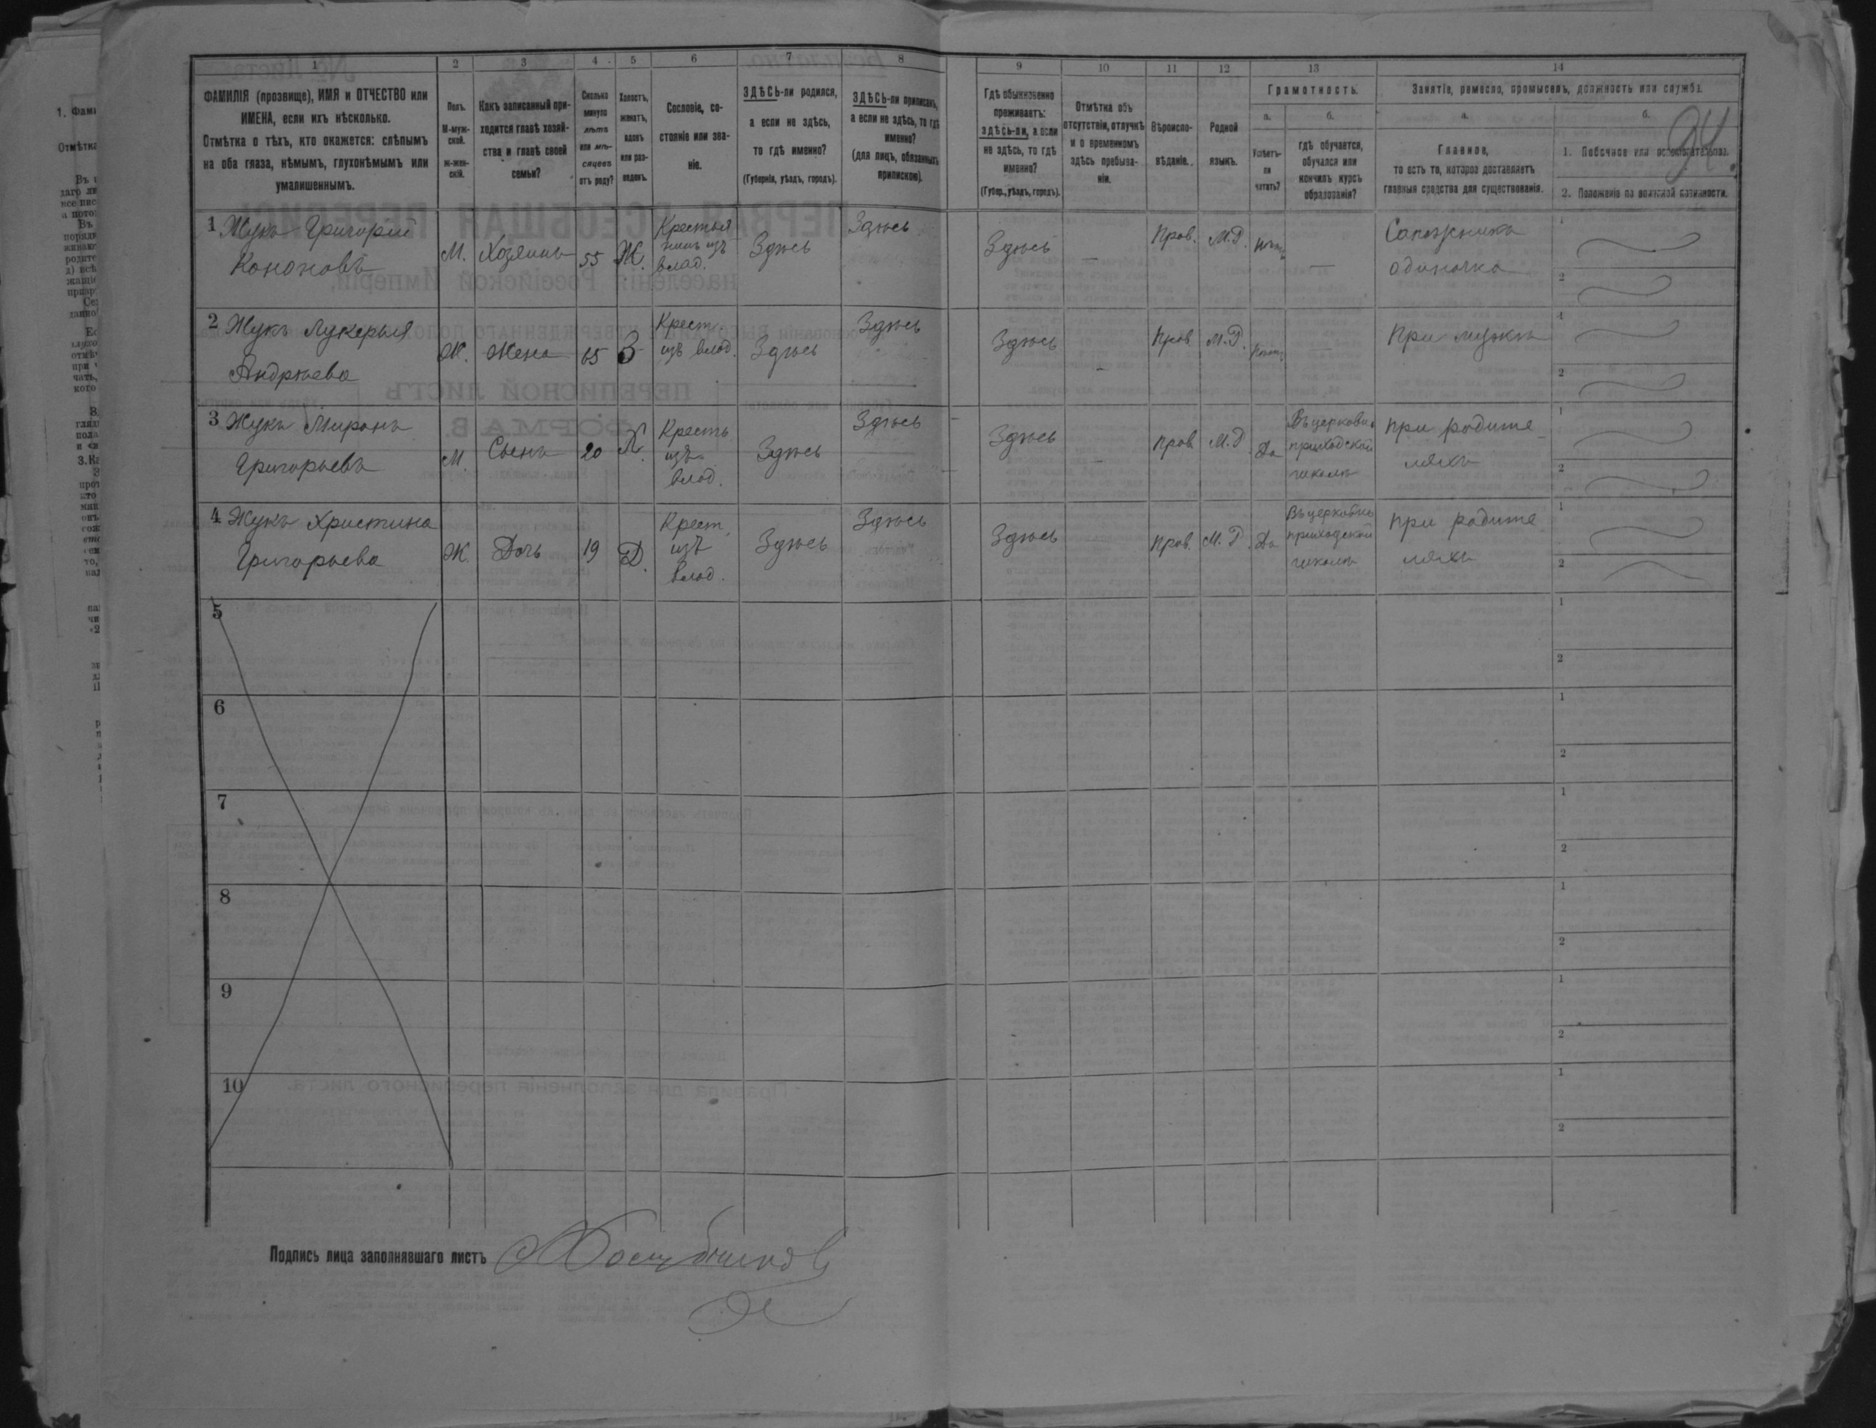 1 2 3 4 5 6 7 8 9 10 11 12 13 14
ФАМИЛІЯ (прозвище), ИМЯ и ОТЧЕСТВО или
ИМЕНА, если ихъ нѣсколько.
Отмѣтка о тѣхъ, кто окажется: слѣпымъ
на оба глаза, нѣмымъ, глухонѣмымъ или
умалишеннымъ.
Полъ.
М-муж-
ской.
Ж-жен-
скій.
Какъ записанный при-
ходится главѣ хозяй-
ства и главѣ своей
семьи?
Сколько
минуло
лѣтъ
или мѣ-
сяцевъ
отъ роду?
Холостъ,
женатъ,
вдовъ
или раз-
веденъ.
Сословіе, со-
стояніе или зва-
ніе.
ЗДѢСЬ-ли родился,
а если не здѣсь,
то гдѣ именно?
(Губернія, уѣздъ, городъ).
ЗДѢСЬ-ли приписанъ,
а если не здѣсь, то гдѣ
именно?
(для лицъ, обязанныхъ
припискою).
Гдѣ обыкновенно
проживаетъ:
здѣсь-ли, а если
не здѣсь, то гдѣ
именно?
(Губер., уѣздъ, городъ).
Отмѣтка объ
отсутствіи, отлучкѣ
и о временномъ
здѣсь пребыва-
ніи.
Вѣроиспо-
вѣданіе.
Родной
языкъ.
Грамотность.
а.
Умѣетъ-
ли
читать?
б.
гдѣ обучается,
обучался или
кончилъ курсъ
образованія?
Занятіе, ремесло, промыселъ, должность или служба.
а.
Главное,
то есть то, которое доставляетъ
главныя средства для существованія.
б.
1. Побочное или вспомогательное.
2. Положеніе по воинской повинности.
94.
1 Жукъ Григорій
Кононовъ
М. Хозяинъ 55 Ж.
Крестья
нинъ изъ
влад.
Здѣсь Здѣсь Здѣсь — Прав. М.Р. —
Сапожникъ
одиночка
1
2
2 Жукъ Лукерья
Андрѣева
Ж. Жена 65 З
Крест.
изъ влад.
Здѣсь Здѣсь Здѣсь — Прав М.Р. —
При мужѣ
1
2
3 Жукъ Миронъ
Григорьевъ
М. Сынъ 20 Х.
Крестъ
изъ
влад.
Здѣсь Здѣсь Здѣсь — Прав М.Р Да
Въ церковно
приходской
школѣ
При родите
ляхъ
1
2
4 Жукъ Христина
Григорьева
Ж. Дочь 19 Д.
Крест
изъ
влад.
Здѣсь Здѣсь Здѣсь Прав. М.Р. Да
Въ церковно
приходской
школѣ
При родите
ляхъ
1
2
5
1
2
6
1
2
7
1
2
8
1
2
9
1
2
10
1
2
Подпись лица заполнявшаго листъ